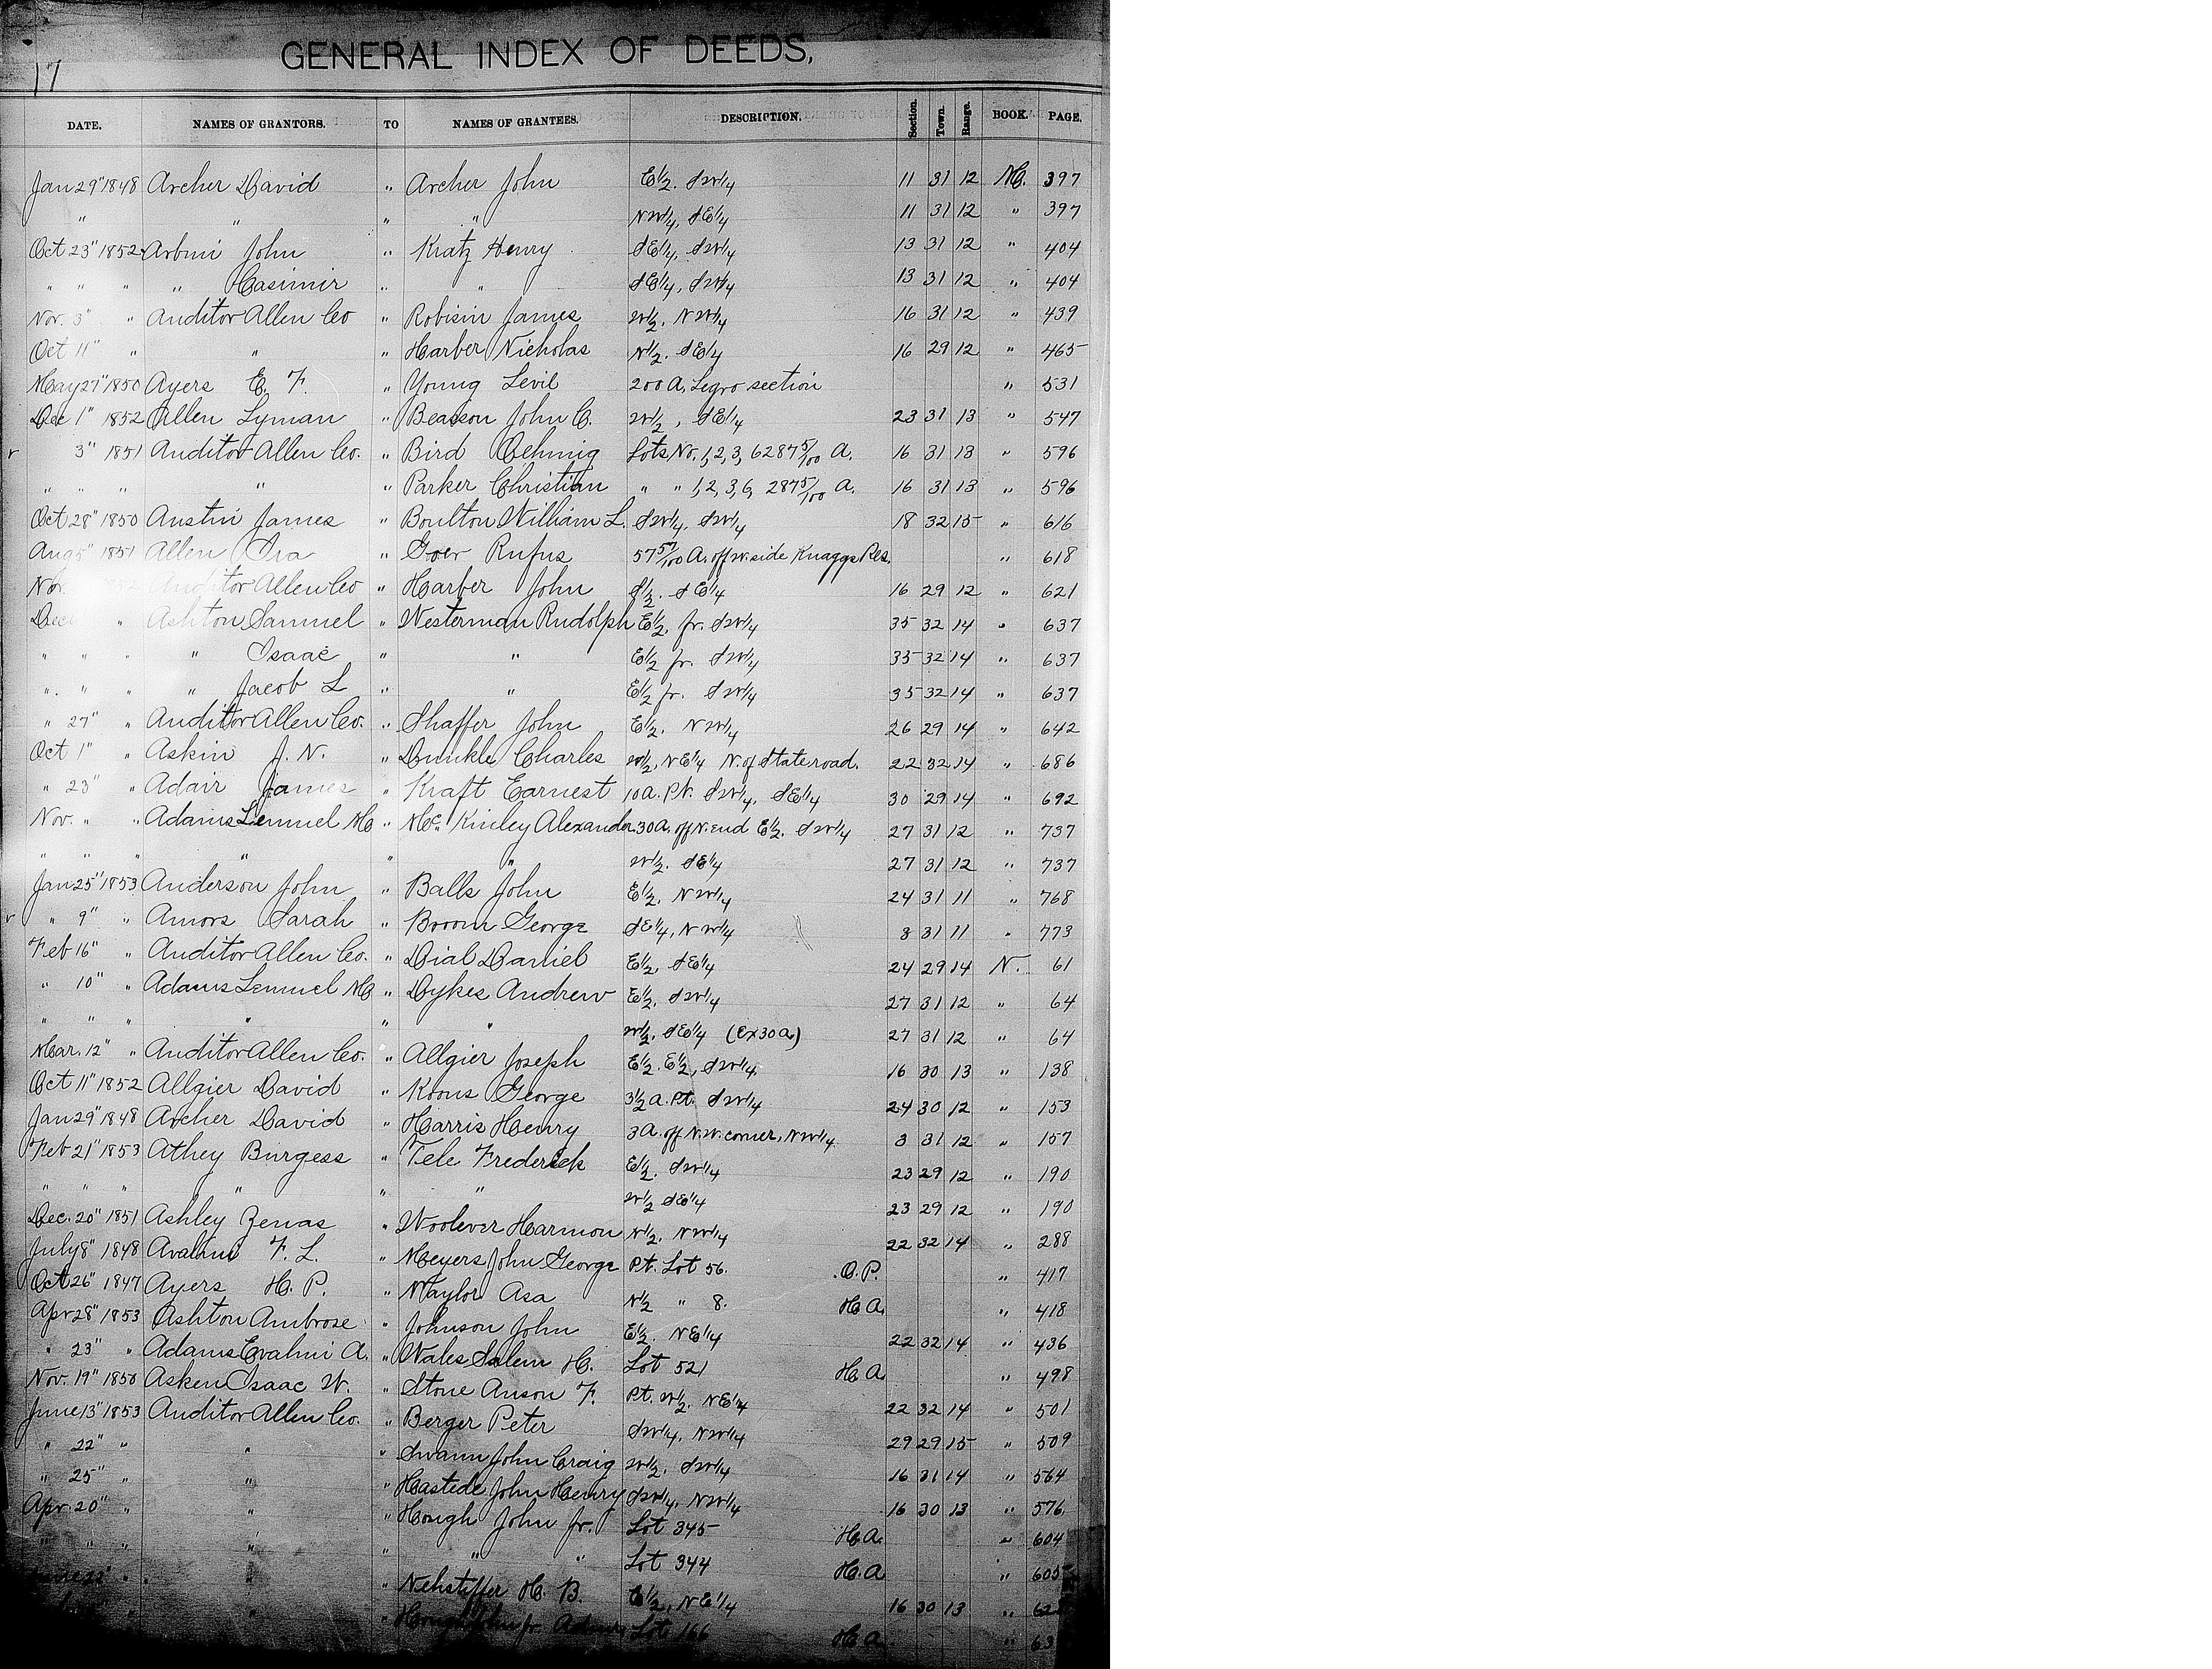 GENERAL INDEX OF DEEDS,
17
DATE. NAMES OF GRANTORS. TO NAMES OF GRANTEES. DESCRIPTION. Section. Town. Range. BOOK. PAGE.
Jan 29" 1848 Archer David " Archer John E1/2. SW1/4 11 31 12 M. 397
" " " " NW1/4, SE1/4 11 31 12 " 397
Oct 23" 1852 John " Kratz Henry SE1/4, SW1/4 13 31 12 " 404
" " " " Casimir " " SE1/4, SW1/4 13 31 12 " 404
Nov. 3" " Auditor Allen Co " Robisin James W1/2. NW1/4 16 31 12 " 439
Oct 11" " " " Harber Nicholas N1/2. SE1/4 16 29 12 " 465
May 27" 1850 Ayers E. F. " Young Levil 200 A, Legro section " 531
Dec 1" 1852 Allen Lyman " Beason John C. W1/2, SE1/4 23 31 13 " 547
3" 1851 Auditor Allen Co. " Bird Oehmig Lots No. 1, 2, 3, 6 287 5/100 A. 16 31 13 " 596
" " " " " Parker Christian " " 1, 2, 3, 6, 287 5/100 A. 16 31 13 " 596
Oct 28" 1850 Austin James " Boulton William L. SW1/4, SW1/4 18 32 15 " 616
Aug 5" 1851 Allen Ira " Goer Rufus A. off W. side Knaggs Res. " 618
Nov. Auditor Allen Co " Harber John S1/2. SE1/4 16 29 12 " 621
Dec " Ashton Samuel " Westerman Rudolph E1/2, fr. SW1/4 35 32 14 " 637
" " " " Isaac " " E1/2 fr. SW1/4 35 32 14 " 637
" " " " Jacob L " " E1/2 fr. SW1/4 35 32 14 " 637
" 27" " Auditor Allen Co. " Shaffer John E1/2. NW1/4 26 29 14 " 642
Oct 1" " Askin J. N. " Dunkle Charles W1/2, NE1/4 N. of State road. 22 32 14 " 686
" 23" " Adair James " Kraft Earnest 10 a. Pt. SW1/4, SE1/4 30 29 14 " 692
Nov. " " Adams Lemuel M " Mc Kinley Alexander 30 A. off N. end E1/2. SW1/4 27 31 12 " 737
" " " " " " W1/2. SE1/4 27 31 12 " 737
Jan 25" 1853 Anderson John " Balls John E1/2, NW1/4 24 31 11 " 768
" 9" " Amors Sarah " Broom George SE1/4, NW1/4 3 31 11 " 773
Feb 16" " Auditor Allen Co. " Dial Daniel E1/2, SE1/4 24 29 14 N. 61
" 10" " Adams Lemuel M " Dykes Andrew E1/2. SW1/4 27 31 12 " 64
" " " " " " W1/2. SE1/4 (Ex 30 a.) 27 31 12 " 64
Mar. 12" " Auditor Allen Co. " Allgier Joseph E1/2. E1/2, SW1/4. 16 30 13 " 138
Oct 11" 1852 Allgier David " Koons George 3 1/2 a. Pt. SW1/4 24 30 12 " 153
Jan 29" 1848 Archer David " Harris Henry 3 A. off N.W. corner, NW1/4 3 31 12 " 157
Feb 21" 1853 Athey Burgess " Tele Frederick E1/2. SW1/4 23 29 12 " 190
" " " " " " W1/2 SE1/4 23 29 12 " 190
Dec. 20" 1851 Ashley Zenas " Woolever Harmon N1/2. NW1/4 22 32 14 " 288
July 8" 1848 F. L. " Meyers John George Pt. Lot 56. O.P. " 417
Oct 26" 1847 Ayers H. P. " Naylor Asa N1/2 " 8. H.A. " 418
Apr 28" 1853 Ashton Ambrose " Johnson John E1/2. NE1/4 22 32 14 " 436
" 23" " Adams Evalini A. " Wales Salem H. Lot 521 H A " 498
Nov. 19" 1850 Asken Isaac W. " Stone Anson F. Pt. W1/2. NE1/4 22 32 14 " 501
June 13" 1853 Auditor Allen Co. " Berger Peter SW1/4, NW1/4 29 29 15 " 509
" 22" " " " Swann John Craig W1/2. SW1/4 16 31 14 " 564
" 25" " " " Hastede John Henry SW1/4, NW1/4 16 30 13 " 576
Apr. 20" " " " Hough John Jr. Lot 345 H.A. " 604
" " " " " " " Lot 344 H.A " 605
22" " " " H. B. E1/2, NE1/4 16 30 13 "
" " " Hough John Jr. Lot 166 H.A. "